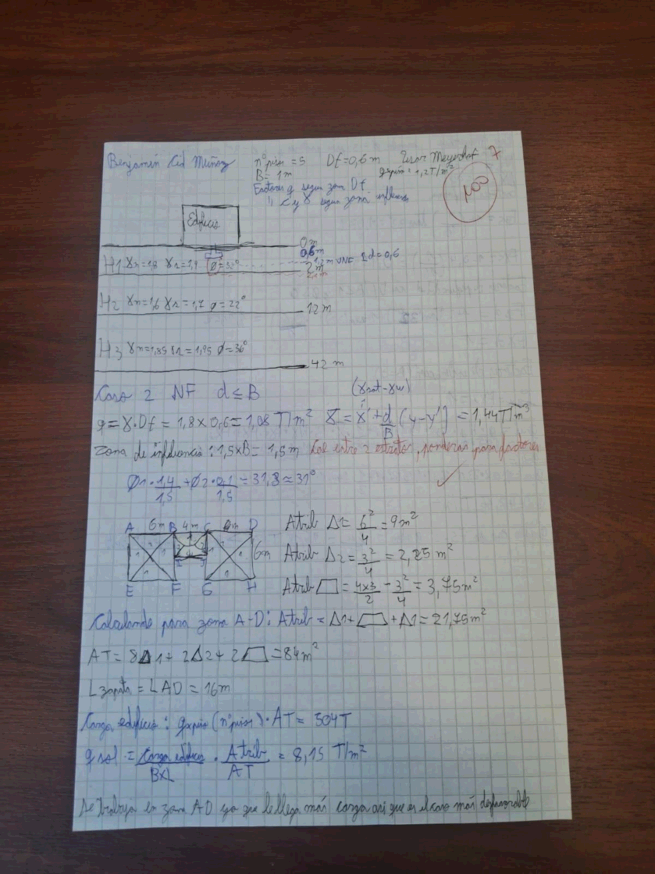 Benjamín Cid Muñoz
nºpisos = 5 Df=0,6 m Usar Meyerhof 7
B= 1m qxpiso: 1,2T/m²
Factores q según zona Df
" c y γ según zona influencia
100
Edificio
0m
0,6m
H1 γn=1,8 γs=1,9 φ=32° 2m
H2 γn=1,6 γs=1,7 φ=22° 12m
H3 γn=1,85 γs=1,95 φ=36°
42m
Caso 2 NF d≤B (γsat-γw)
q=γ·Df = 1,8x0,6=1,08 T/m² γ = γ'+d/B(γ-γ') = 1,44T/m³
zona de influencia: 1,5xB= 1,5m Cae entre 2 estratos, ponderas para factores
φ1·1,4/1,5+φ2·0,1/1,5=31,8≃31°
A 6m B 4m C 6m D
6m
E F G H
Atrib Δ1= 6²/4=9m²
Atrib Δ2= 3²/4=2,25 m²
Atrib ⏢= 4x3/2 - 3²/4= 3,75m²
Calculando para zona A-D: Atrib= Δ1+⏢+Δ1=21,75m²
AT= 8Δ1+ 2Δ2+ 2⏢=84m²
Lzapata = LAD = 16m
Carga edificio: qxpiso(nºpisos)·AT= 504T
q sol = Carga edificio/BxL · Atrib/AT = 8,15 T/m²
Se trabaja en zona AD ya que le llega más carga así que es el caso más desfavorable